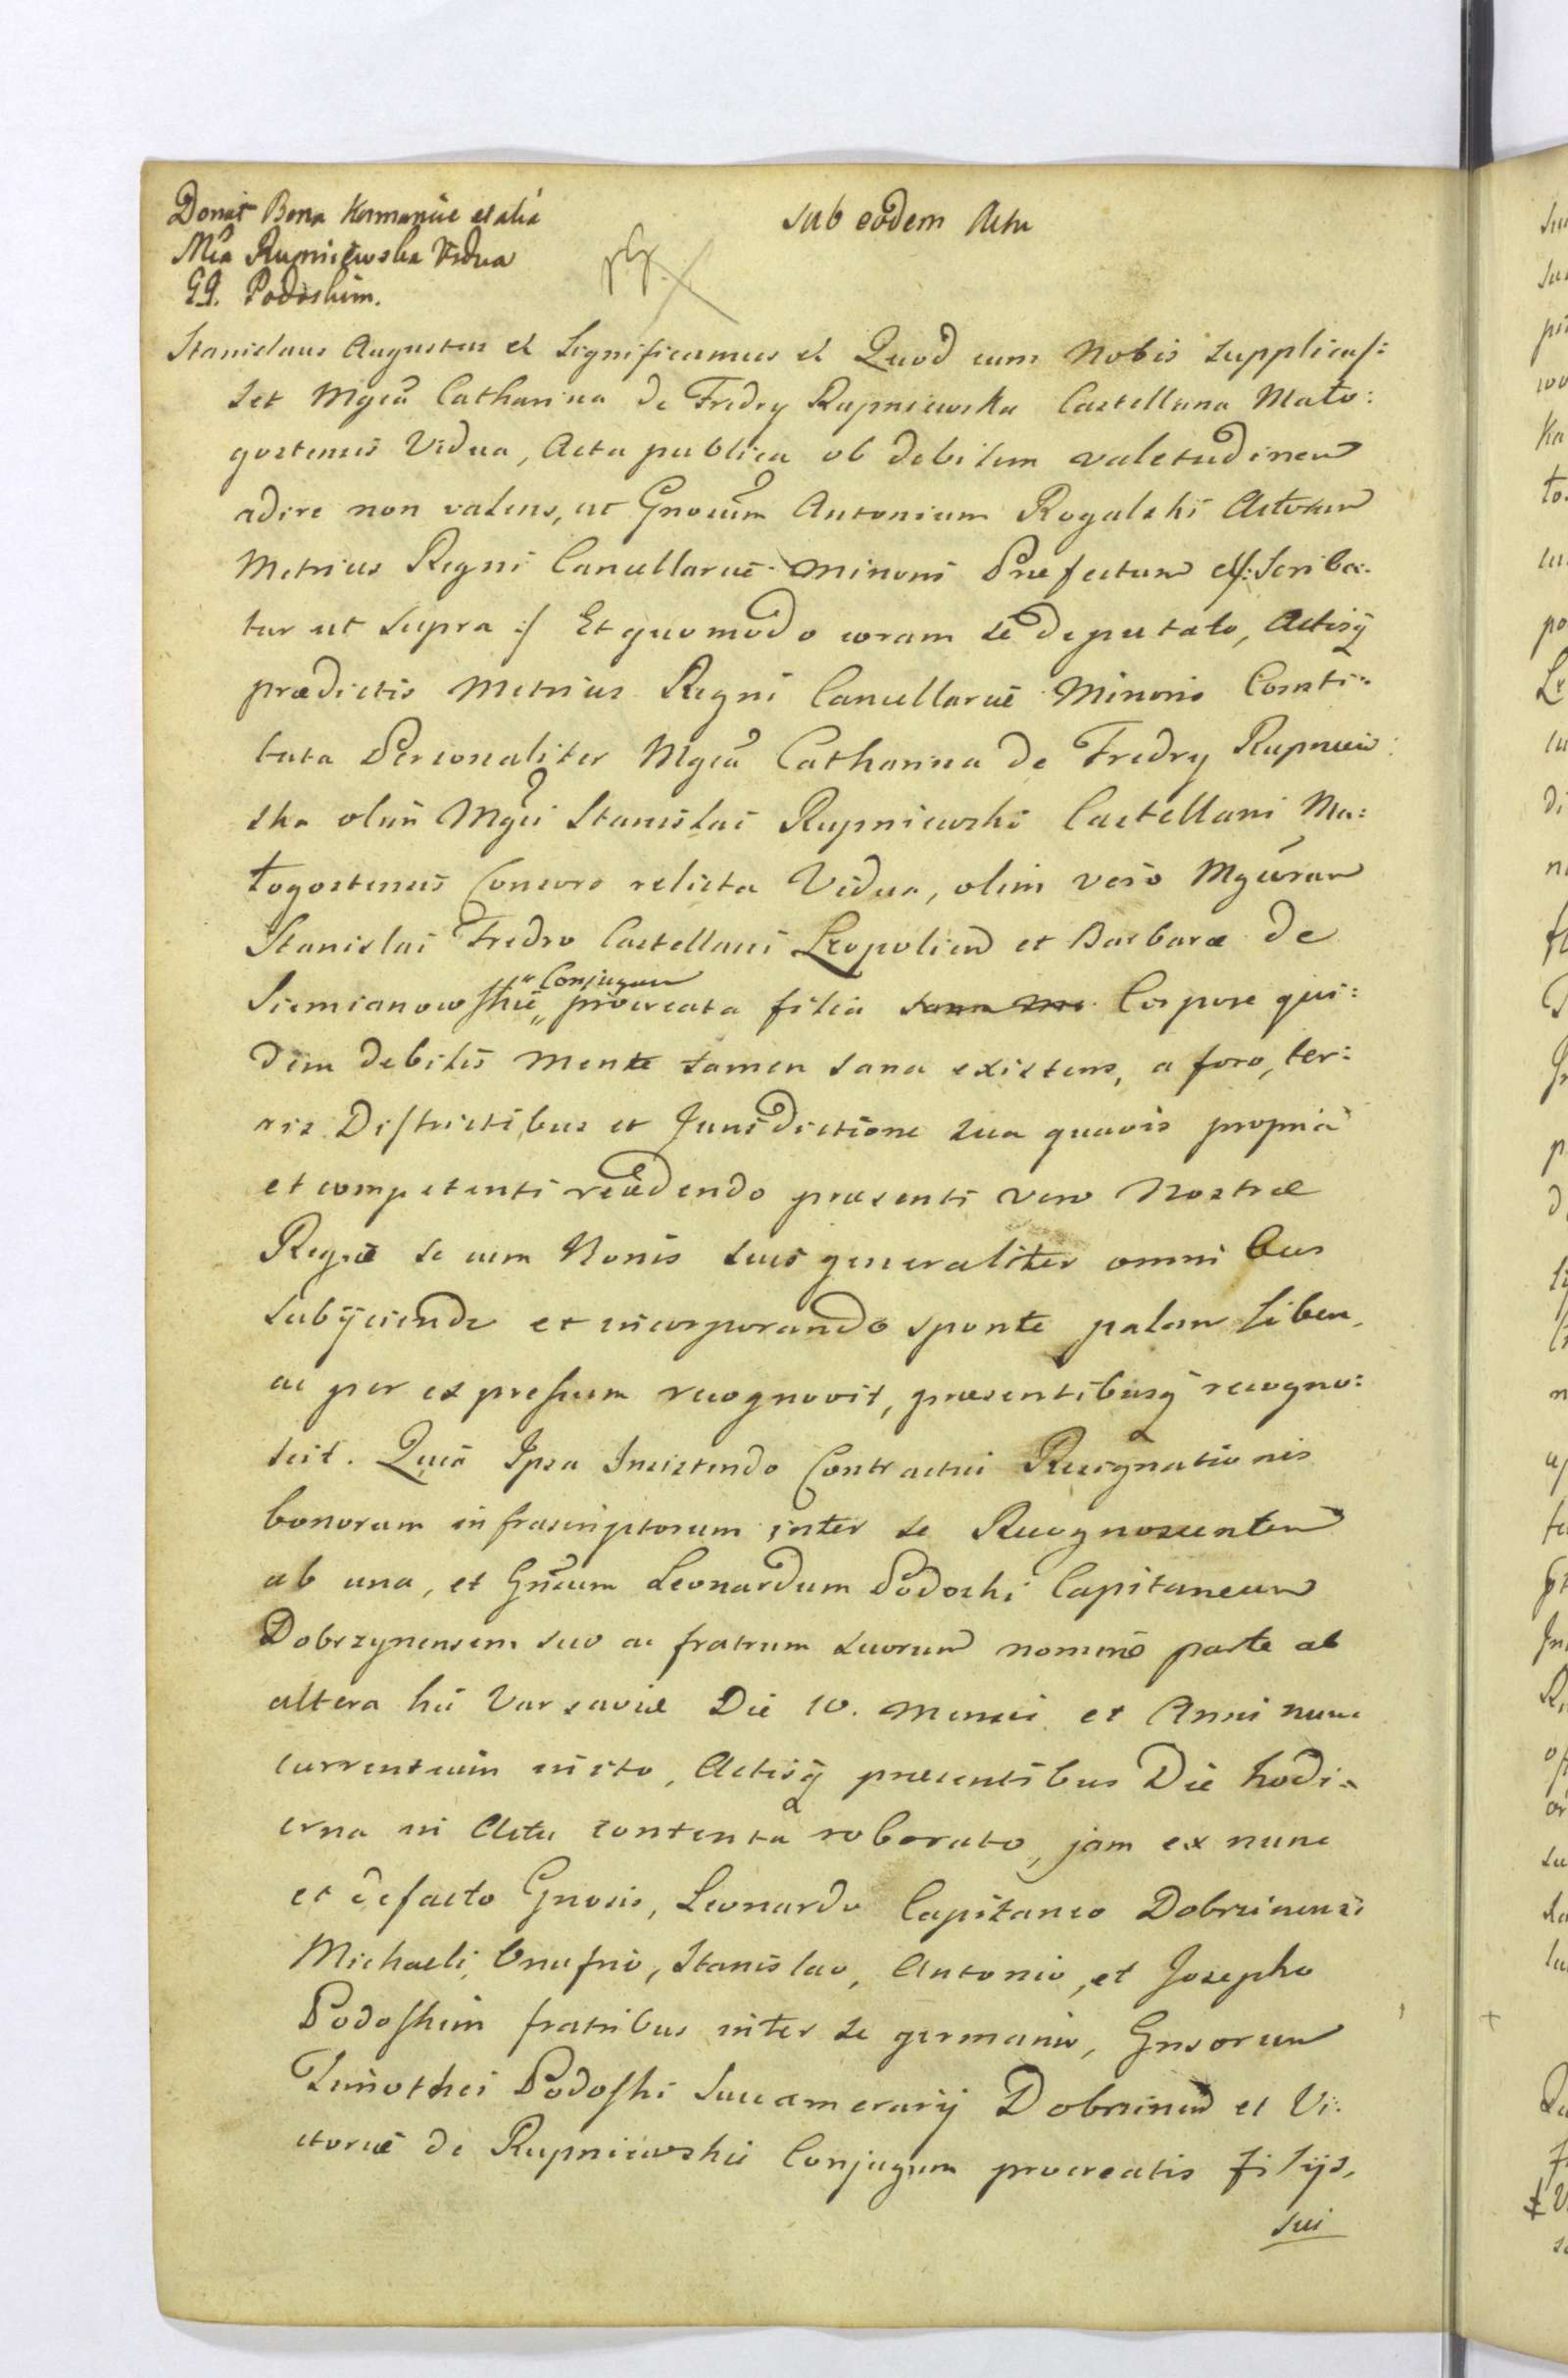 Donat Bona Hermanice et alia
Mca Rupniewska Vidua
GG. Podoskim.
sub eodem Actu
Stanislaus Augustus et Significamus et Quod cum Nobis supplicas:
set Mgca Catharina de Fredry Rupniewska Castellana Mało:
gostensis Vidua, Acta publica ob debilem valetudinem
adire non valens, ut Gnosum Antonium Rogalski Actorum
Metrices Regni Cancellariæ Minoris Præfectum etc /: Scriba:
tur ut supra :/ Et quomodo coram se deputato, Actisq
prædictis Metrices Regni Cancellariæ Minoris Consti:
tuta Personaliter Mgca Catharina de Fredry Rupniew:
ska olim Mgci Stanislai Rupniewski Castellani Ma:
łogostensis Consors relicta Vidua, olim vero Mgcorum
Stanislai Fredro Castellani Leopolien et Barbaræ de
Siemianowskie „ Conjugum procreata filia sana me Corpore qui:
dem debilis Mente tamen sana existens, a foro, ter:
ris Districtibus et Jurisdictione sua quavis propria
et competenti recedendo præsenti vero Nostræ
Regiæ se cum Bonis suis generaliter omnibus
subijciendo et incorporando sponte palam liben,
ac per expressum recognovit, præsentibusq recogno:
scit. Quia Ipsa Insistendo Contractui Resignationis
bonorum infrascriptorum inter se Recognoscentem
ab una, et Gnsum Leonardum Podoski Capitaneum
Dobrzynensem suo ac fratrum suorum nomine parte ab
altera hic Varsaviæ Die 10. Mensis et Anni nunc
currentium inito, Actisq præsentibus Die hodi:
erna in Actu contenta roborato, jam ex nunc
et defacto Gnosis, Leonardo Capitaneo Dobrzinensi
Michaeli, Onufrio, Stanislao, Antonio, et Josepho
Podoskim fratribus inter se germanis, Gnsorum
Timothei Podoski Succamerarij Dobrzinen et Vi:
ctoriæ de Rupniewskie Conjugum procreatis filijs,
sui